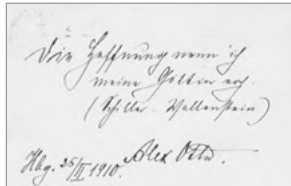 Die Hoffnung nenn ich
meine Göttin noch.
(Schiller - Wallenstein)
Hbg. 25/II 1910. Alex Otto.